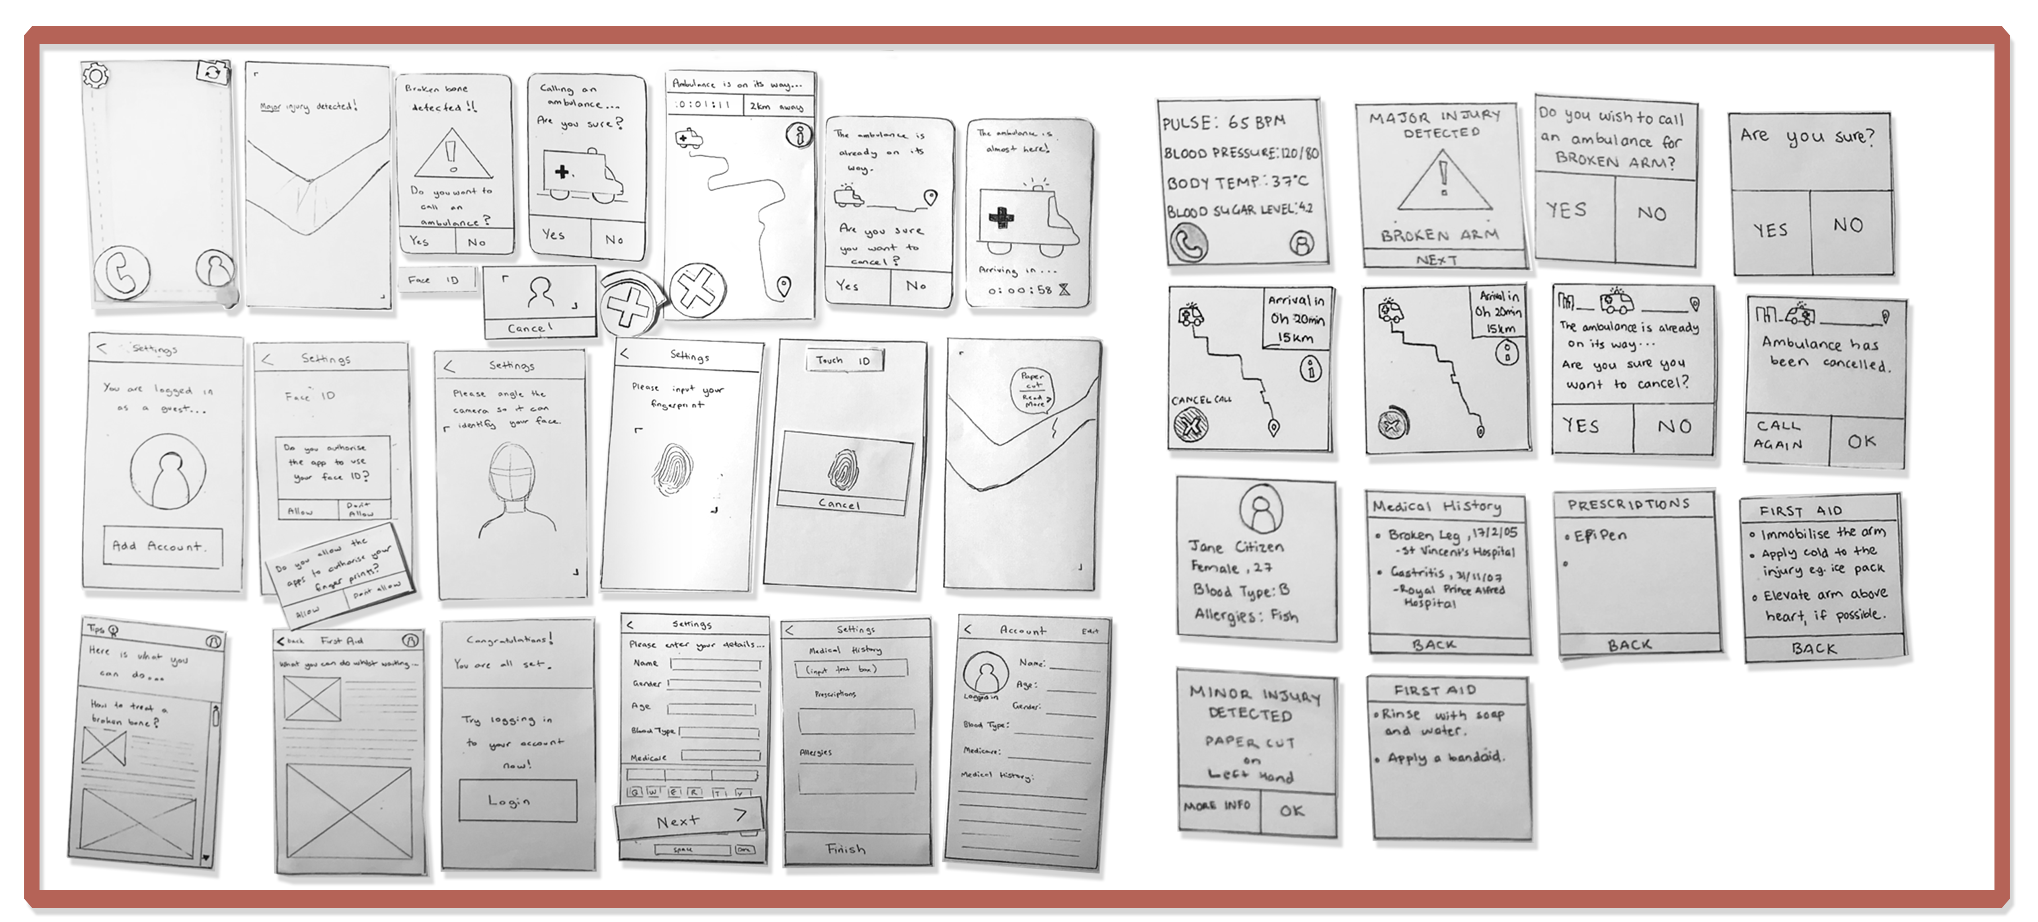 Major injury detected!
Broken bone
detected!!
Do you want to
call an
ambulance?
Yes
No
Calling an
ambulance...
Are you sure?
Yes
No
Ambulance is on its way...
0:01:11
2km away
The ambulance is
already on its
way.
Are you sure
you want to
cancel?
Yes
No
The ambulance is
almost here!
Arriving in...
0:00:58
Face ID
Cancel
< Settings
You are logged in
as a guest...
Add Account.
< Settings
Face ID
Do you authorise
the app to use
your face ID?
Allow
Don't
Allow
Do you allow the
apps to authorise your
finger prints?
Allow
Dont allow
< Settings
Please angle the
camera so it can
identify your face.
< Settings
Please input your
fingerprint
Touch ID
Cancel
Paper
cut
Read
More
Tips
Here is what you
can do...
How to treat a
broken bone?
< back
First Aid
What you can do whilst waiting...
Congratulations!
You are all set.
Try logging in
to your account
now!
Login
< Settings
Please enter your details...
Name
Gender
Age
Blood Type
Medicare
Q W E R T Y
Next >
space
< Settings
Medical History
(input text box)
Prescriptions
Allergies
Finish
< Account
Edit
Logged in
Name:
Age:
Gender:
Blood Type:
Medicare:
Medical History:
PULSE: 65 BPM
BLOOD PRESSURE: 120/80
BODY TEMP.: 37°C
BLOOD SUGAR LEVEL: 4.2
MAJOR INJURY
DETECTED
BROKEN ARM
NEXT
Do you wish to call
an ambulance for
BROKEN ARM?
YES
NO
Are you sure?
YES
NO
Arrival in
0h 20min
15km
CANCEL CALL
Arrival in
0h 20min
15km
The ambulance is already
on its way...
Are you sure you
want to cancel?
YES
NO
Ambulance has
been cancelled.
CALL
AGAIN
OK
Jane Citizen
Female, 27
Blood Type: B
Allergies: Fish
Medical History
• Broken Leg, 17/2/05
-St Vincent's Hospital
• Gastritis, 31/11/07
-Royal Prince Alfred
Hospital
BACK
PRESCRIPTIONS
• EpiPen
•
BACK
FIRST AID
• Immobilise the arm
• Apply cold to the
injury eg. ice pack
• Elevate arm above
heart, if possible.
BACK
MINOR INJURY
DETECTED
PAPER CUT
on
Left Hand
MORE INFO
OK
FIRST AID
• Rinse with soap
and water.
• Apply a bandaid.